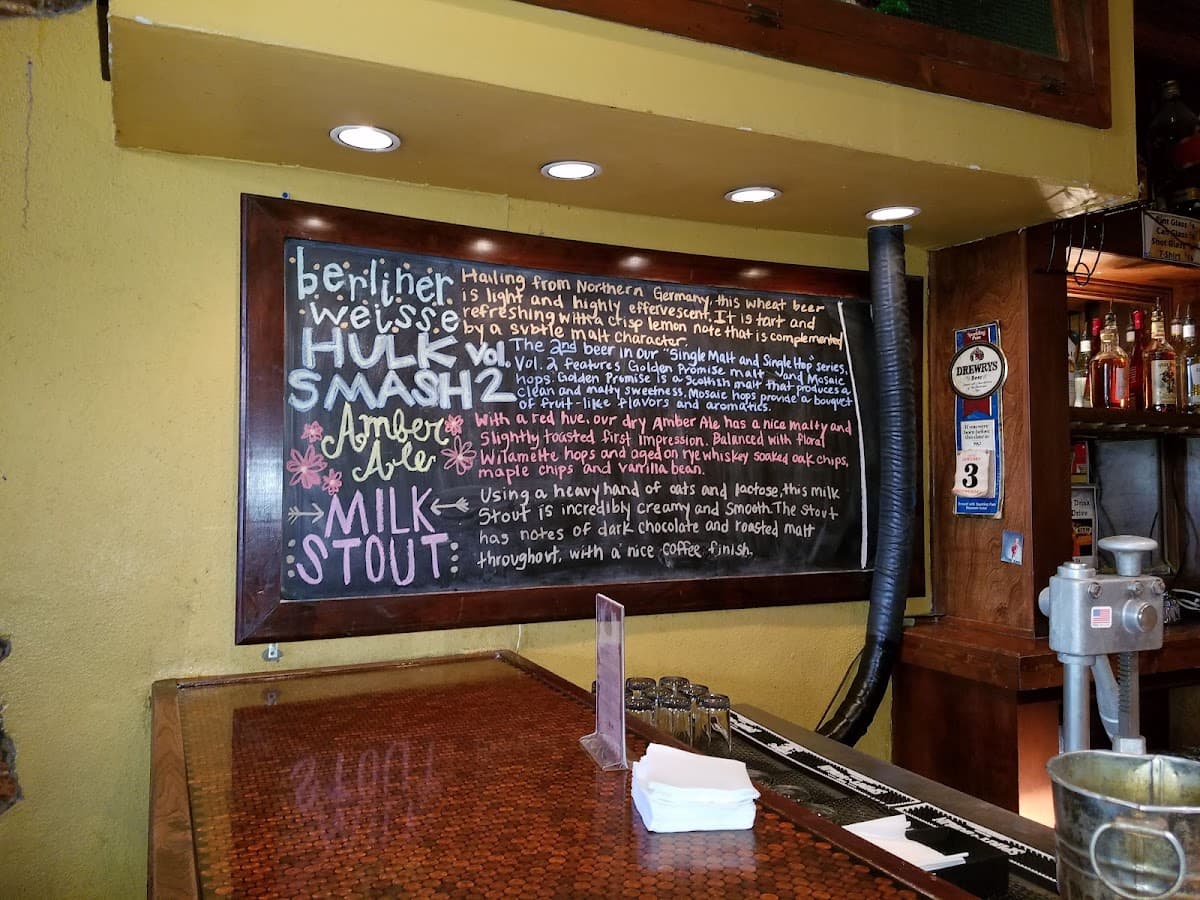 berliner
weisse
Hailing from Northern Germany, this wheat beer
is light and highly effervescent. It is tart and
refreshing with a crisp lemon note that is complemented
by a subtle malt character.
HULK Vol.
SMASH 2
The 2nd beer in our "Single Malt and Single Hop" series.
Vol. 2 features Golden Promise malt and Mosaic
hops. Golden Promise is a Scottish malt that produces a
clean and malty sweetness, Mosaic hops provide a bouquet
of fruit-like flavors and aromatics.
Amber
Ale
With a red hue, our dry Amber Ale has a nice malty and
slightly toasted first impression. Balanced with floral
Wilamette hops and aged on rye whiskey soaked oak chips,
maple chips and vanilla bean.
MILK
STOUT
Using a heavy hand of oats and lactose, this milk
Stout is incredibly creamy and smooth. The stout
has notes of dark chocolate and roasted malt
throughout, with a nice coffee finish.
Pint Glass
Can Glass
Shot Glass
T-Shirt
DREWRYS
Beer
3